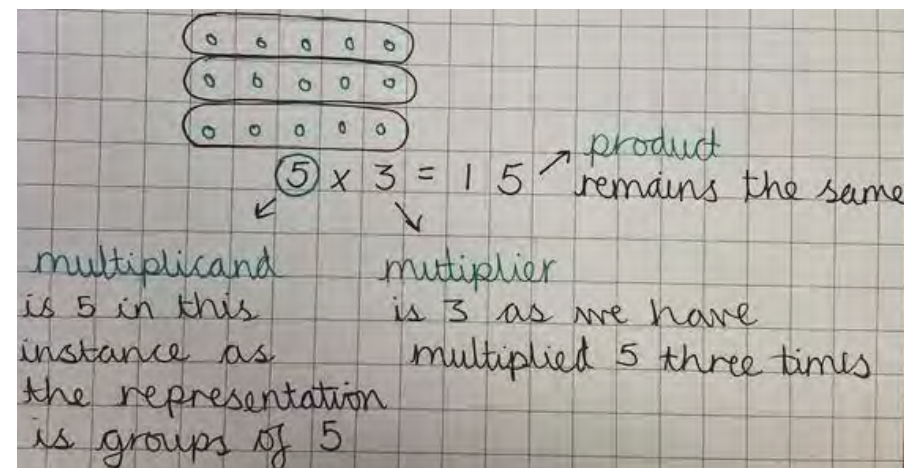 5 x 3 = 15
product
remains the same
multiplicand
is 5 in this
instance as
the representation
is groups of 5
mutiplier
is 3 as we have
multiplied 5 three times